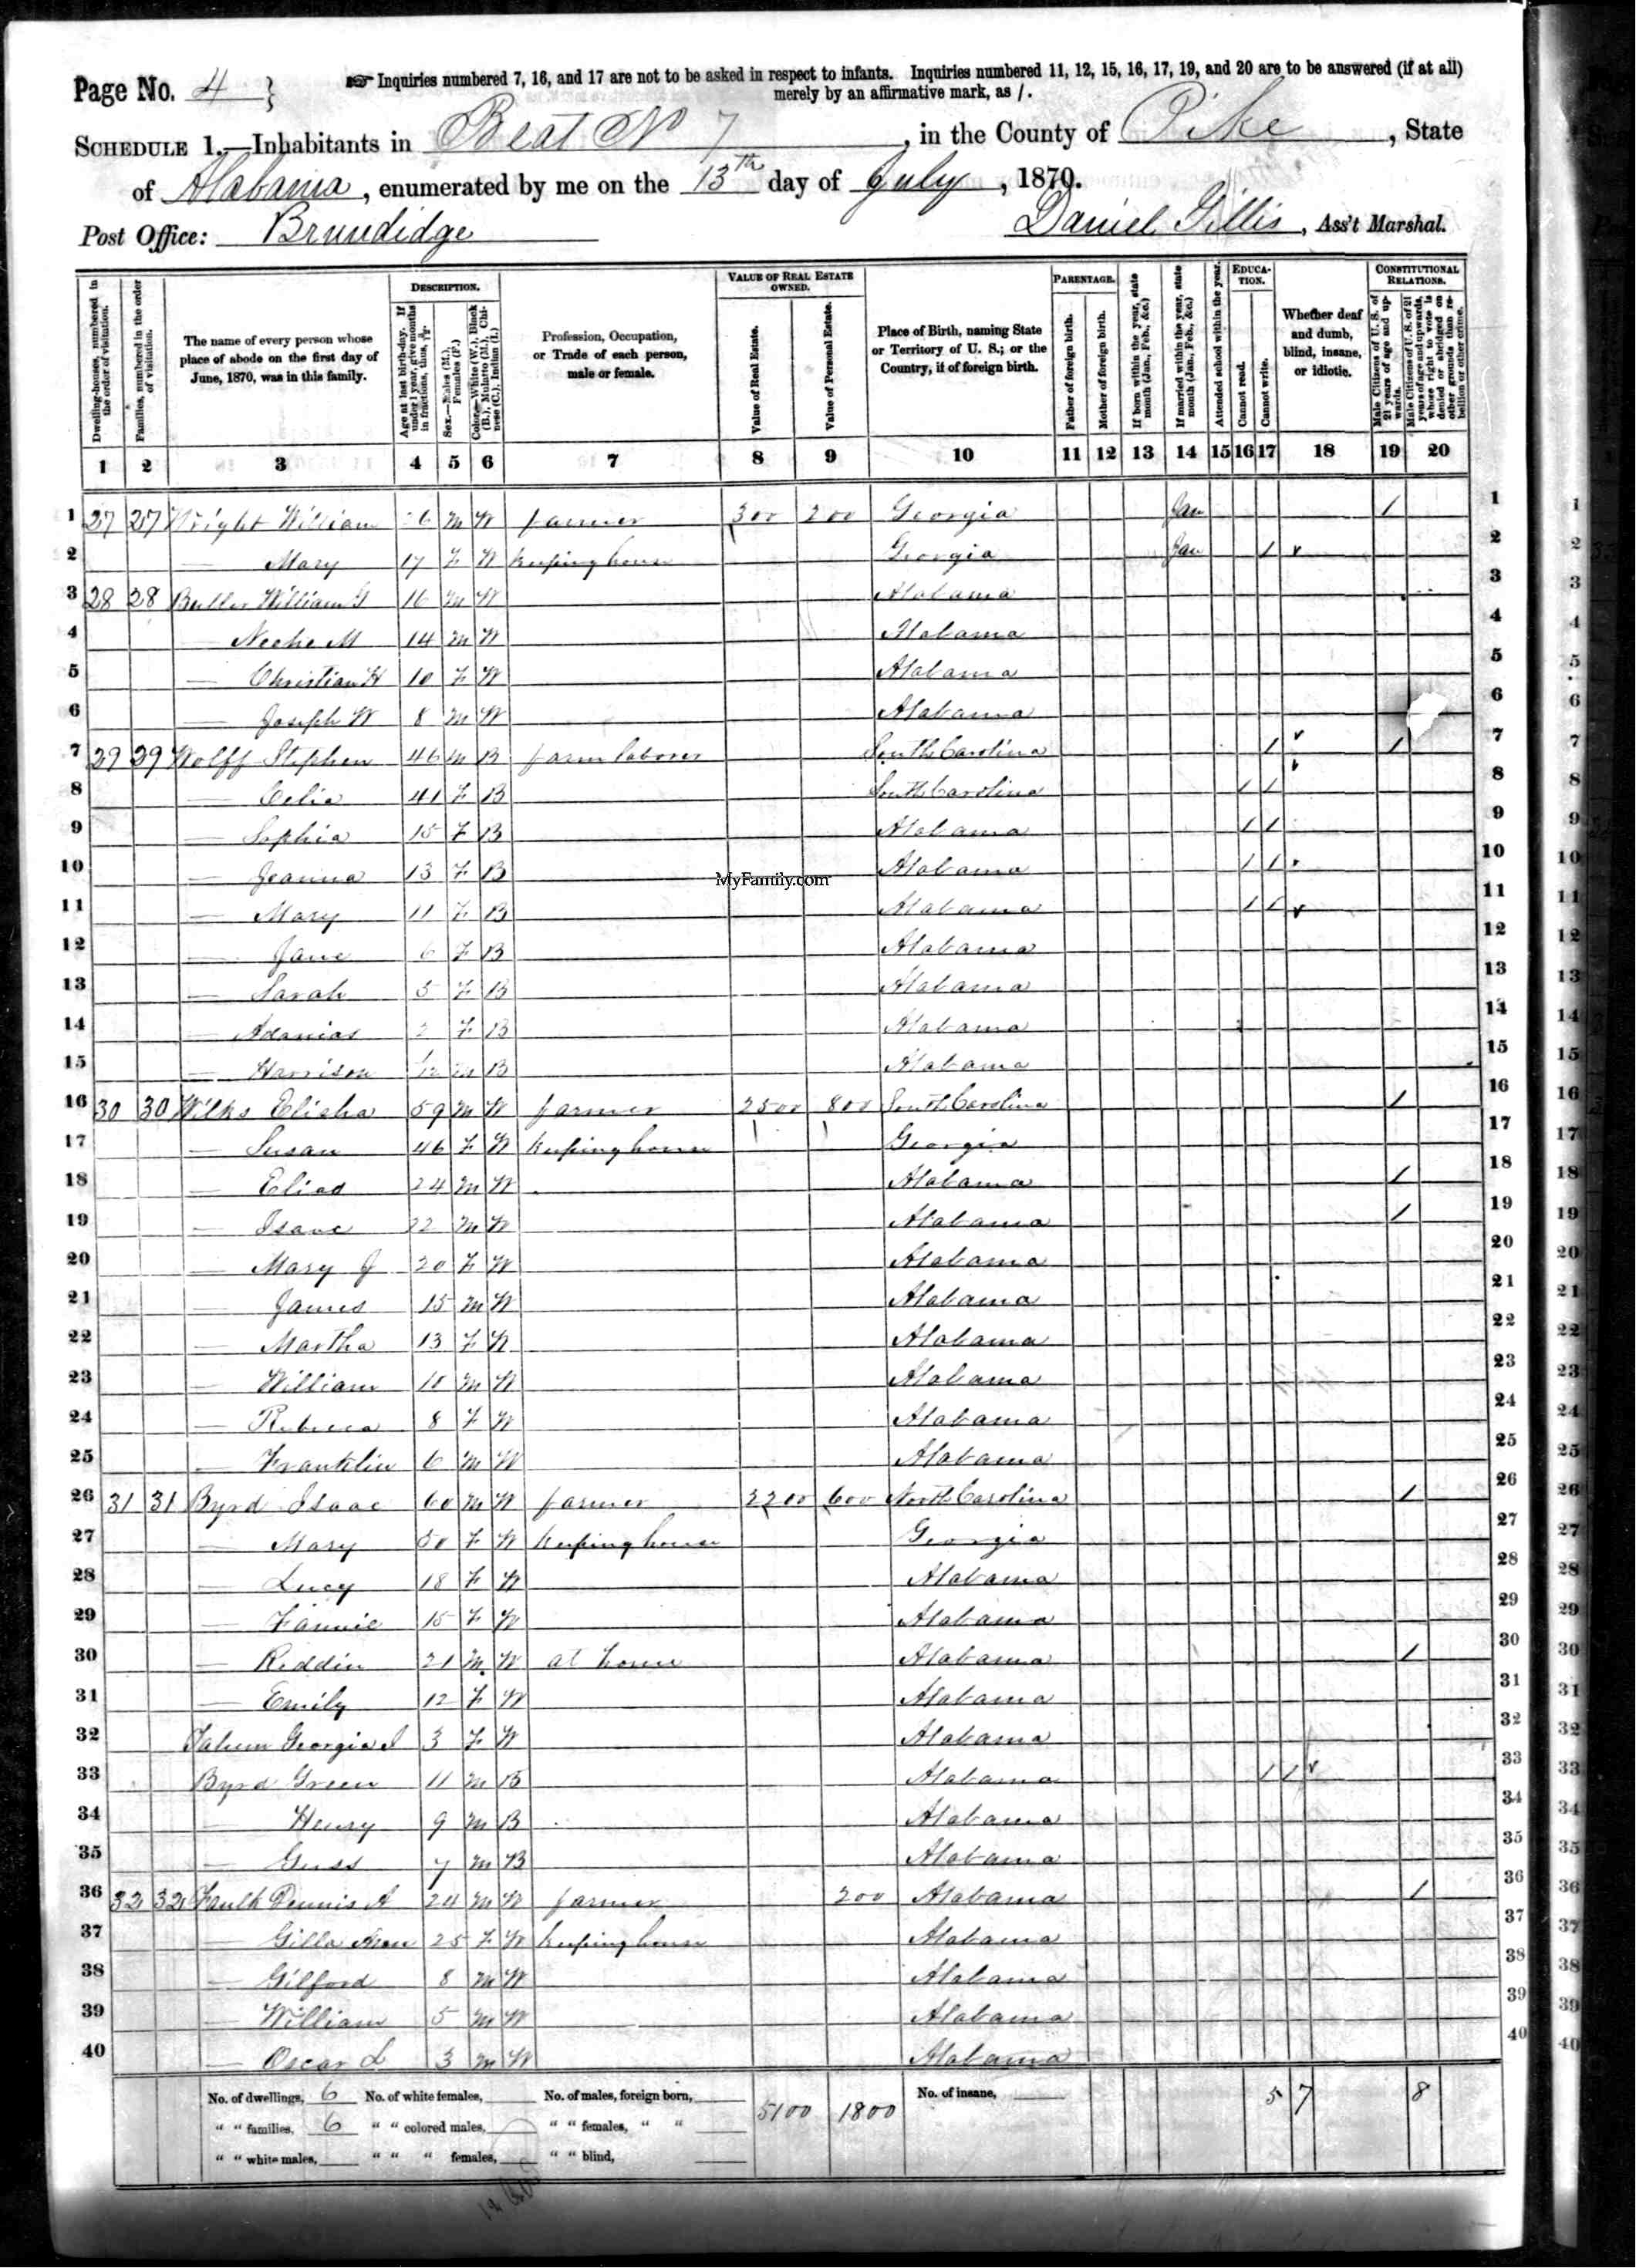 Page No. 4
☞ Inquiries numbered 7, 16, and 17 are not to be asked in respect to infants. Inquiries numbered 11, 12, 15, 16, 17, 19, and 20 are to be answered (if at all)
merely by an affirmative mark, as /.
SCHEDULE 1.—Inhabitants in Beat No 7, in the County of Pike, State
of Alabama, enumerated by me on the 13th day of July, 1870.
Post Office: Brundidge
Daniel Gillis, Ass't Marshal.
Dwelling-houses, numbered in the order of visitation.
Families, numbered in the order of visitation.
The name of every person whose place of abode on the first day of June, 1870, was in this family.
DESCRIPTION.
Age at last birth-day. If under 1 year, give months in fractions, thus,
Sex.—Males (M.), Females (F.)
Color.—White (W.), Black (B.), Mulatto (M.), Chinese (C.), Indian (I.)
Profession, Occupation, or Trade of each person, male or female.
VALUE OF REAL ESTATE OWNED.
Value of Real Estate.
Value of Personal Estate.
Place of Birth, naming State or Territory of U. S.; or the Country, if of foreign birth.
PARENTAGE.
Father of foreign birth.
Mother of foreign birth.
If born within the year, state month (Jan., Feb., &c.)
If married within the year, state month (Jan., Feb., &c.)
Attended school within the year.
EDUCATION.
Cannot read.
Cannot write.
Whether deaf and dumb, blind, insane, or idiotic.
CONSTITUTIONAL RELATIONS.
Male Citizens of U. S. of 21 years of age and upwards.
Male Citizens of U. S. of 21 years of age and upwards, whose right to vote is denied or abridged on other grounds than rebellion or other crime.
1 2 3 4 5 6 7 8 9 10 11 12 13 14 15 16 17 18 19 20
1 27 27 Wright William M W farmer 300 200 Georgia Jan / 1
2 — Mary 17 F W Keeping house Georgia Jan / 2
3 28 28 William G 16 M W Alabama 3
4 — M 14 M W Alabama 4
5 — Christian H 10 F W Alabama 5
6 — Joseph W 8 M W Alabama 6
7 29 29 Wolff Stephen 46 M B farm laborer South Carolina / / 7
8 — Celia 41 F B South Carolina / / 8
9 — Sophia 15 F B Alabama / / 9
10 — Joanna 13 F B Alabama / / 10
MyFamily.com
11 — Mary 11 F B Alabama / / 11
12 — Jane 6 F B Alabama 12
13 — Sarah 5 F B Alabama 13
14 — 2 F B Alabama 14
15 — Harrison 1/12 M B Alabama 15
16 30 30 Wilks Elisha 59 M W farmer 2500 800 South Carolina / 16
17 — Susan 46 F W Keeping house Georgia 17
18 — 24 M W Alabama / 18
19 — Isaac 22 M W Alabama / 19
20 — Mary J 20 F W Alabama 20
21 — James 15 M W Alabama 21
22 — Martha 13 F W Alabama 22
23 — William 10 M W Alabama 23
24 — Rebecca 8 F W Alabama 24
25 — Franklin 6 M W Alabama 25
26 31 31 Byrd Isaac 60 M W farmer 2200 600 North Carolina / 26
27 — Mary 50 F W Keeping house Georgia 27
28 — Lucy 18 F W Alabama 28
29 — Fannie 15 F W Alabama 29
30 — Reddin 21 M W at home Alabama / 30
31 — Emily 12 F W Alabama 31
32 Georgia 3 F W Alabama 32
33 Byrd Green 11 M B Alabama / / 33
34 — Henry 9 M B Alabama 34
35 — Guss 7 M B Alabama 35
36 32 32 Faulk Dennis A 24 M W farmer 200 Alabama / 36
37 — Gilla Ann 25 F W Keeping house Alabama 37
38 — Gilford 8 M W Alabama 38
39 — William 5 M W Alabama 39
40 — Oscar L 3 M W Alabama 40
No. of dwellings, 6 No. of white females, No. of males, foreign born, No. of insane,
" " families, 6 " " colored males, " " females, " " 5100 1800 5 7 8
" " white males, " " " females, " " blind,